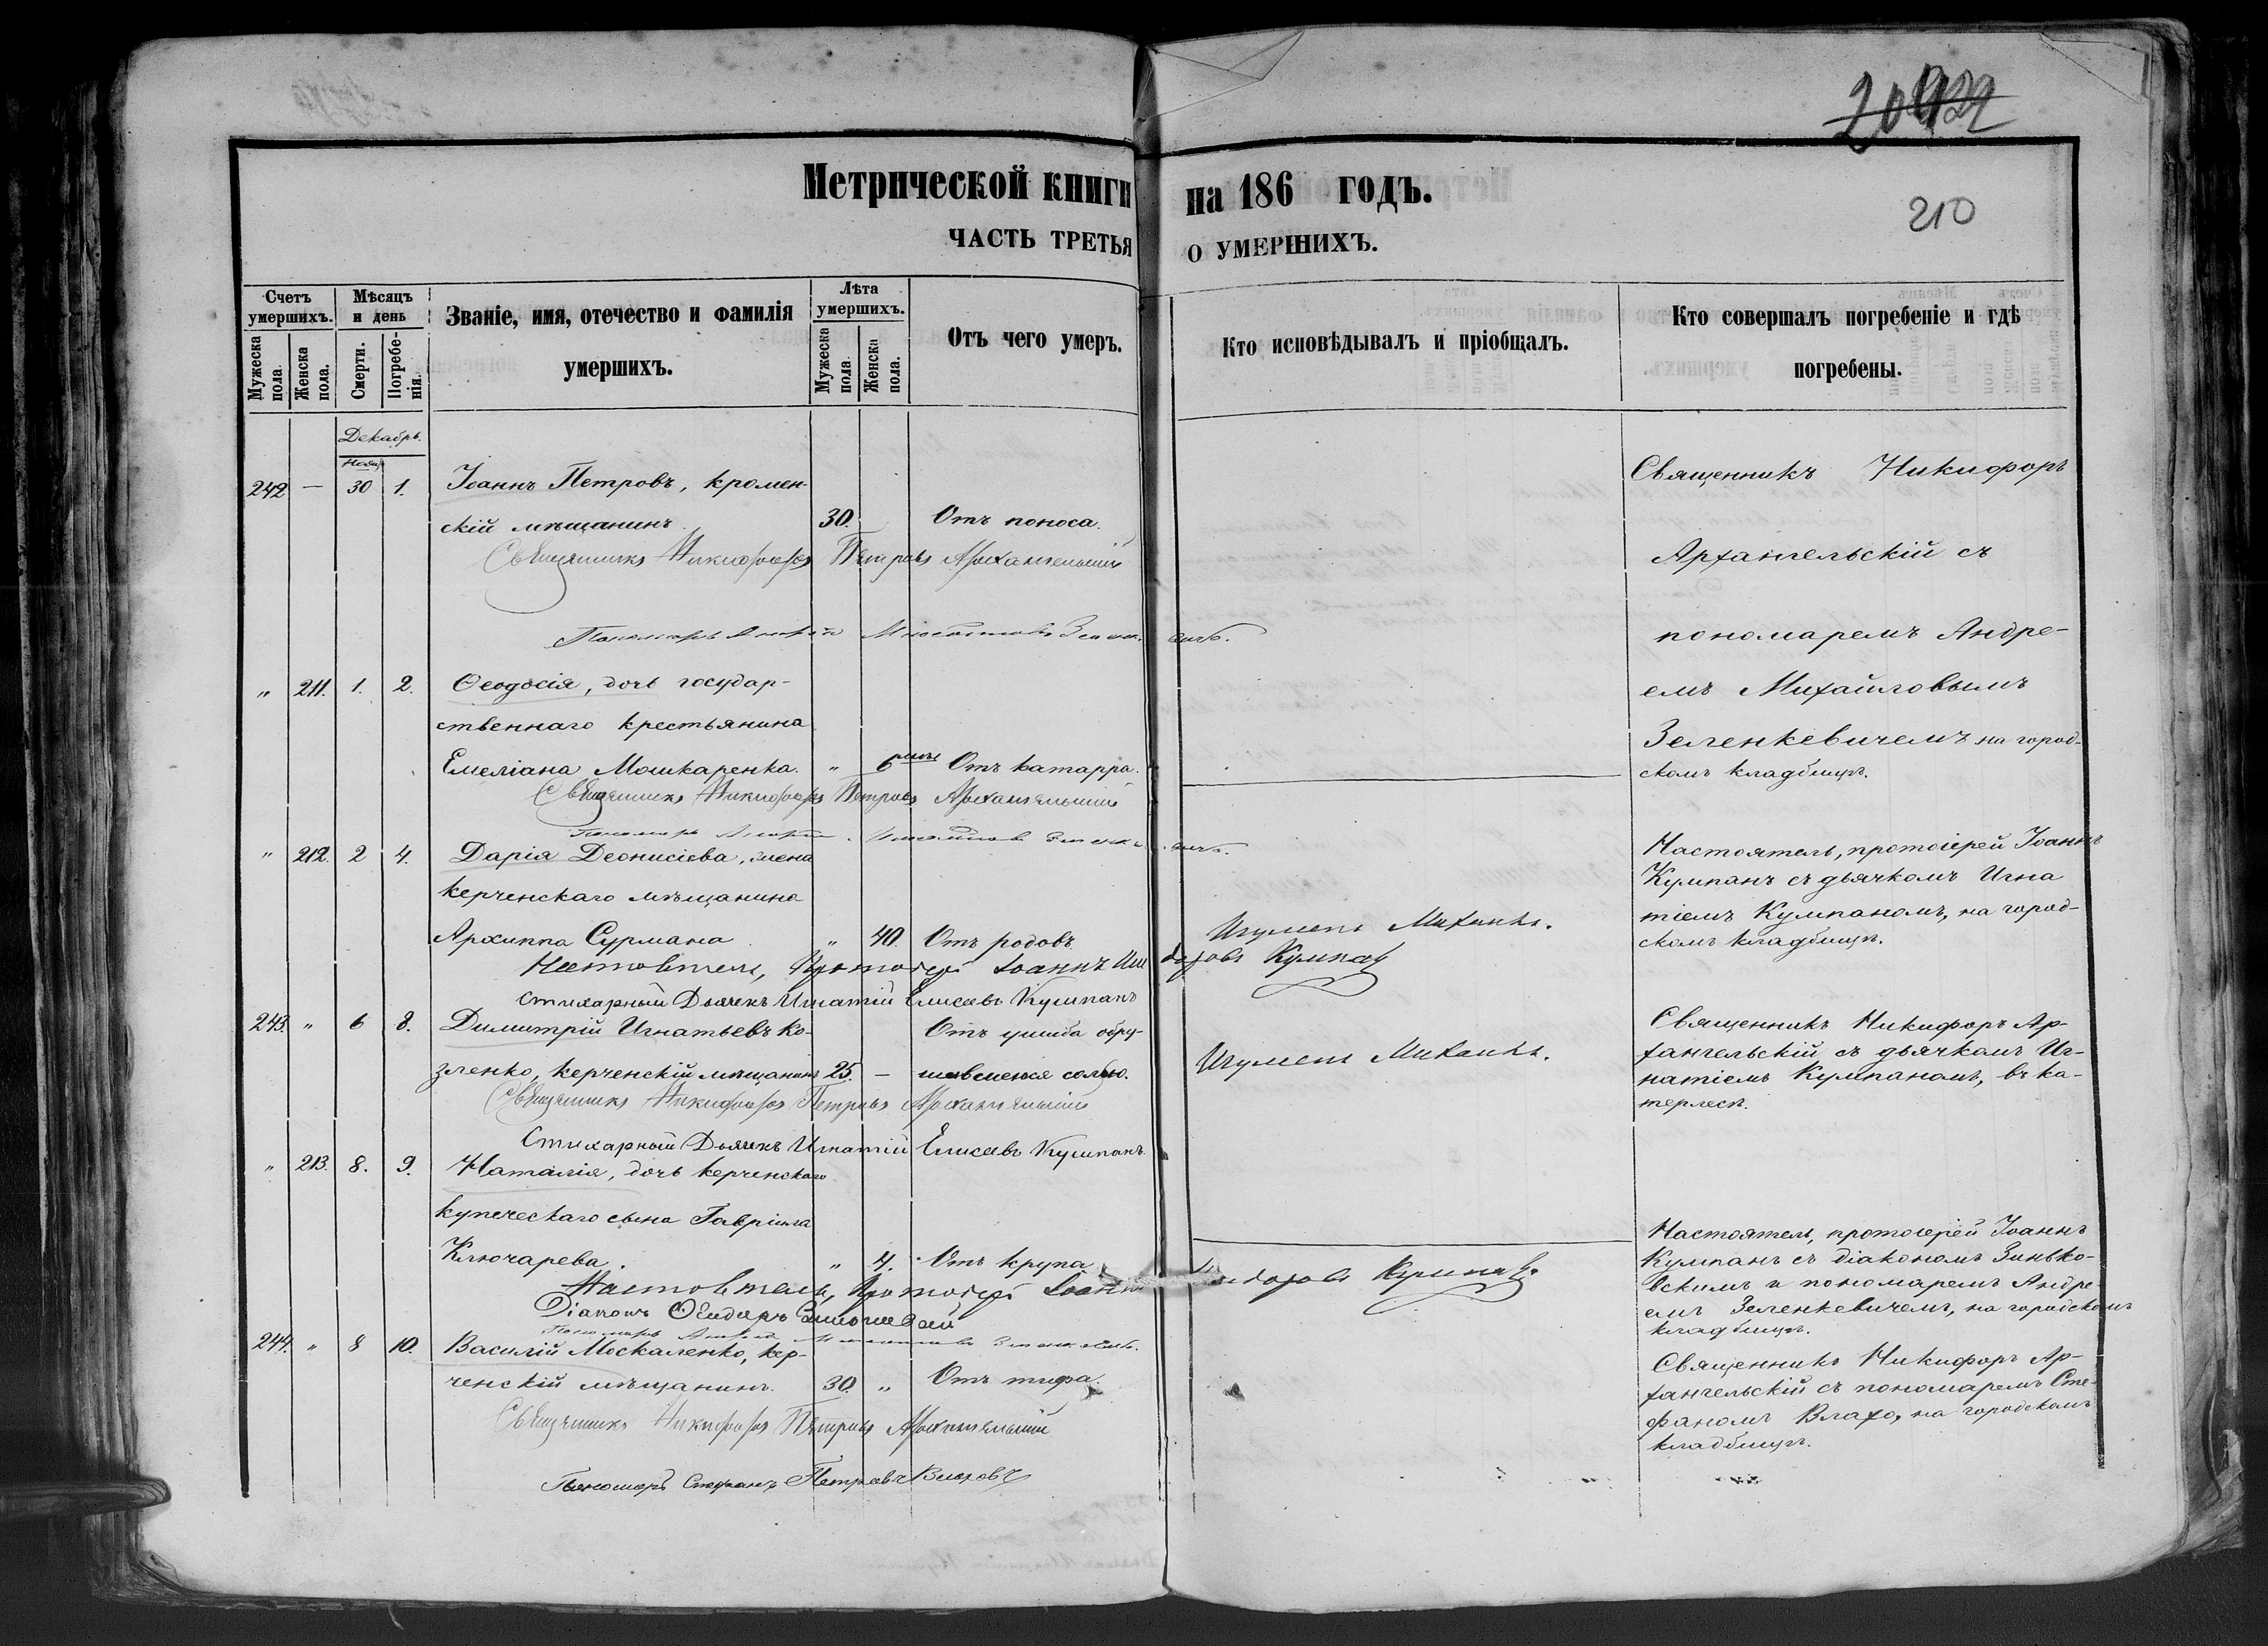 20 922
210
Метрической книги на 186 годъ.
ЧАСТЬ ТРЕТЬЯ О УМЕРШИХЪ.
Счетъ умершихъ.
Мужеска пола.
Женска пола.
Мѣсяцъ и день
Смерти.
Погребенія.
Званіе, имя, отечество и фамилія
умершихъ.
Лѣта умершихъ.
Мужеска пола.
Женска пола.
Отъ чего умеръ.
Кто исповѣдывалъ и пріобщалъ.
Кто совершалъ погребеніе и гдѣ
погребены.
Декабрь.
Нояб
242 — 30 1. Іоаннъ Петровъ, кромен-
скій мѣщанинъ 30. Отъ поноса.
Священникъ Никифоръ Петровъ Архангельскій
Пономарь Андрей Михайловъ Зеленкевичъ.
Священникъ Никифоръ
Архангельскій съ
пономаремъ Андре-
емъ Михайловымъ
Зеленкевичемъ на город-
скомъ кладбищѣ.
" 211. 1. 2. Ѳеодосія, дочь государ-
ственнаго крестьянина
Емеліана Мошкаренка. " 6 Отъ катарра.
Священникъ Никифоръ Петровъ Архангельскій
Пономарь Андрей Михайловъ Зеленкевичъ.
" 212. 2 4. Дарія Деонисіева, жена
керченскаго мѣщанина
Архиппа Сурмана " 40. Отъ родовъ.
Игуменъ Михаилъ.
Настоятель, Протоіерей Іоаннъ Исидоровъ Кумпанъ
Стихарный Дьячекъ Игнатій Елисеевъ Кумпанъ
Настоятель, протоіерей Іоаннъ
Кумпанъ съ дьячкомъ Игна
тіемъ Кумпаномъ, на город-
скомъ кладбищѣ.
243. " 6 8. Димитрій Игнатьевъ Ко- Отъ ушиба обру-
зленко, керченскій мѣщанинъ 25. — шившеюся солью.
Игуменъ Михаилъ.
Священникъ Никифоръ Петровъ Архангельскій
Стихарный Дьячекъ Игнатій Елисеевъ Кумпанъ.
Священникъ Никифоръ Ар-
хангельскій съ дьячкомъ Иг-
натіемъ Кумпаномъ, въ ка-
терлесѣ.
" 213. 8. 9. Наталія, дочь керченскаго
купеческаго сына Гавріила
Ключарева. " 4. Отъ крупа
Настоятель, Протоіерей Іоаннъ Исидоровъ Кумпанъ
Діаконъ Зиньковскій
Пономарь Андрей Михайловъ Зеленкевичъ.
Настоятель, протоіерей Іоаннъ
Кумпанъ съ діакономъ Зинько-
вскимъ и пономаремъ Андре
емъ Зеленкевичемъ, на городскомъ
кладбищѣ.
244. " 8 10. Василій Москаленко, кер-
ченскій мѣщанинъ. 30. " Отъ тифа.
Священникъ Никифоръ Петровъ Архангельскій
Пономарь Стефанъ Петровъ
Священникъ Никифоръ Ар-
хангельскій съ пономаремъ Сте-
фаномъ Влахо, на городскомъ
кладбищѣ.